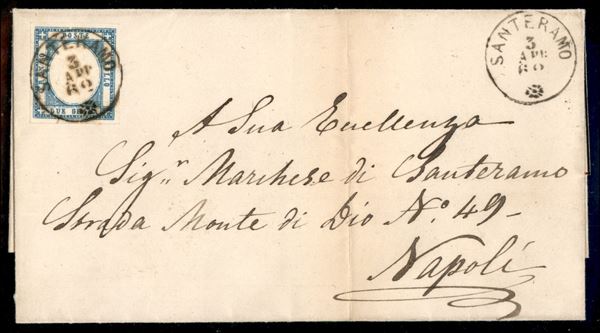 SANTERAMO
3
APR
62
DUE
SANTERAMO
3
APR
62
A Sua Eccellenza
Sig.r Marchese di Santeramo
Strada Monte di Dio No. 49-
Napoli